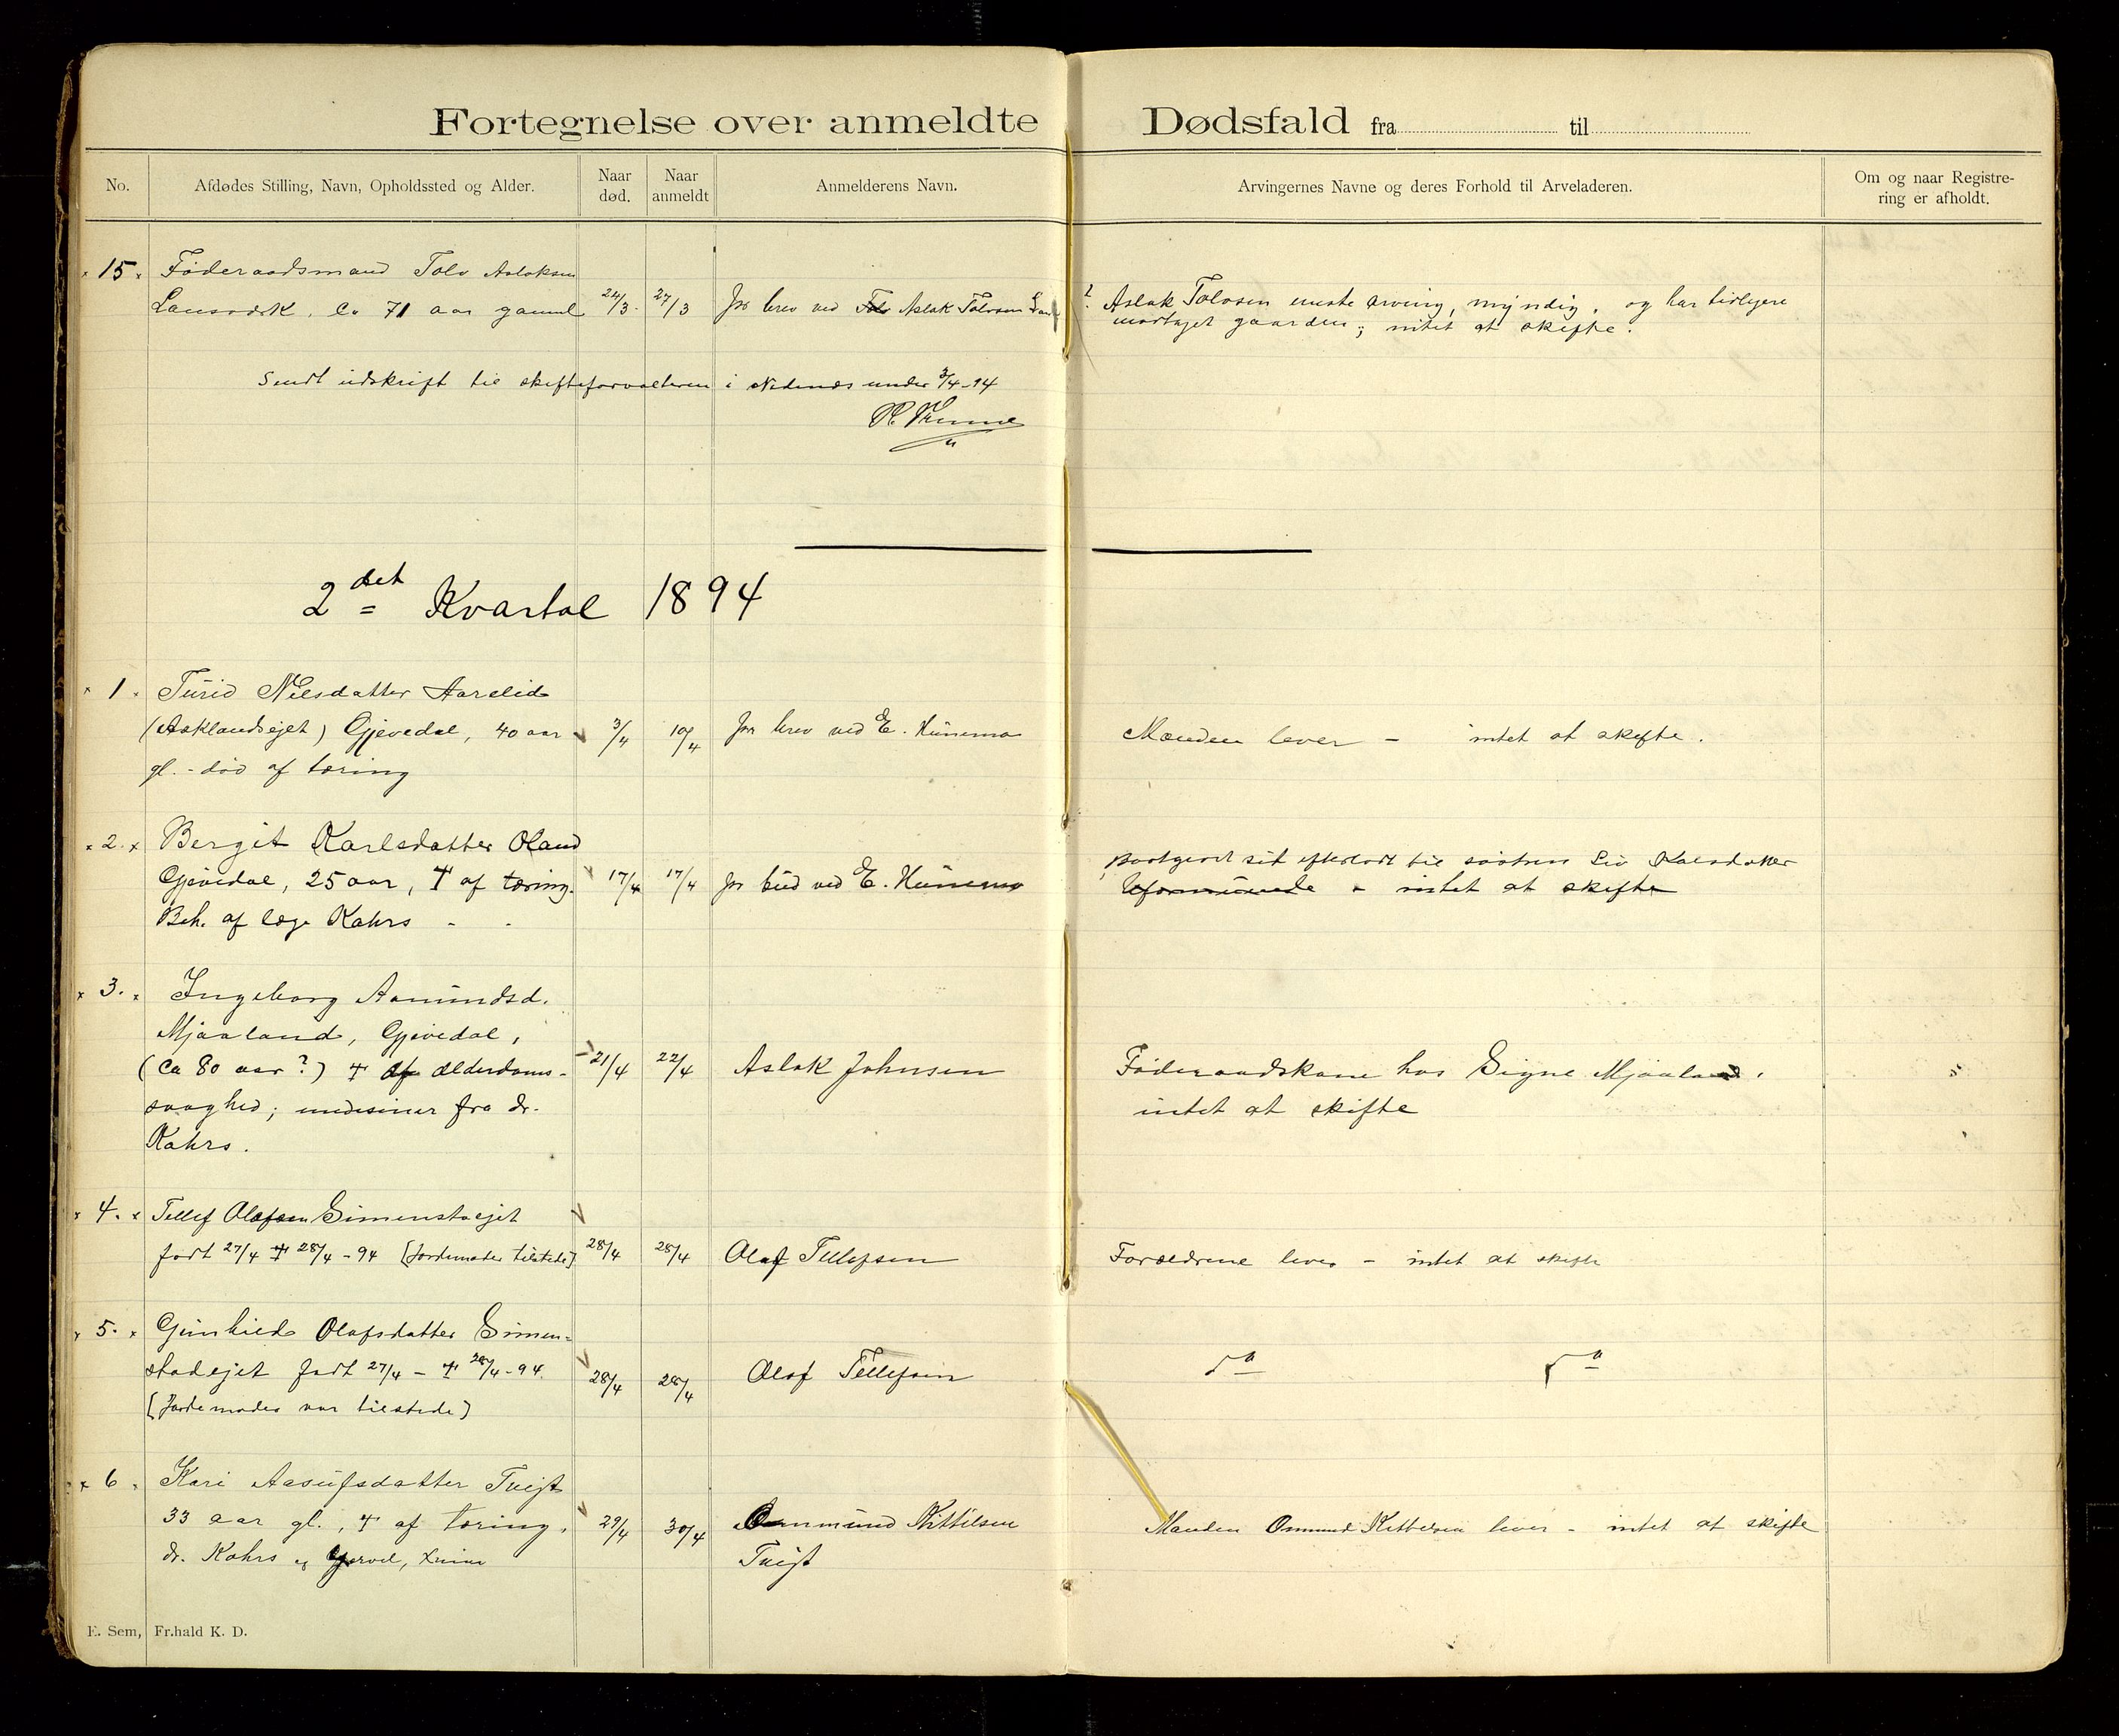 Fortegnelse over anmeldte Dødsfald fra til
No. Afdødes Stilling, Navn, Opholdssted og Alder. Naar død. Naar anmeldt Anmelderens Navn. Arvingernes Navne og deres Forhold til Arveladeren. Om og naar Registrering er afholdt.
15. Føderaadsmand Tolv Aslaksen
ca 71 aar gammel 24/3. 27/3 pr brev ved Aslak Tolvsen
Aslak Tolvsen eneste arving, myndig, og har tidligere
modtaget gaarden; intet at skifte.
Sendt udskrift til skifteforvalteren i Nedenes under 3/4-94
2det Kvartal 1894
1. Turid Nilsdatter Aarelid
(Asklandsejet) Gjevedal, 40 aar 3/4 10/4 pr brev ved E. Hunemo Manden lever - intet at skifte.
gl. - død af tæring
2. Bergit Karlsdatter Øland
Gjevedal, 25 aar, † af tæring. 17/4 17/4 pr bud ved E. Hunemo
Beh. af læge Kahrs - -
Bortgivet sit efterladt til søstren Liv Kalsdatter
Uformuende - intet at skifte
3. Ingeborg Aamundsd.
Mjaaland, Gjevedal,
(ca 80 aar?) † af alderdoms- 21/4 22/4 Aslak Johnsen Føderaadskone hos Signe Mjaaland.
svaghed; medisiner fra dr. intet at skifte
Kahrs.
4. Tellef Olafsen Simenstadejet
født 27/4 † 28/4-94 [Jordemoder tilstede] 28/4 28/4 Olaf Tellefsen Forældrene lever - intet at skifte
5. Gunhild Olafsdatter Simen-
stadejet født 27/4 - † 28/4-94. 28/4 28/4 Olaf Tellefsen da da
[Jordemoder var tilstede]
6. Kari Aasufsdatter Tveit
33 aar gl., † af tæring, 29/4 30/4 Ommund Kittilsen Manden Ommund Kettelsen lever - intet at skifte
dr. Kahrs og Tveit
E. Sem, Fr.hald K. D.